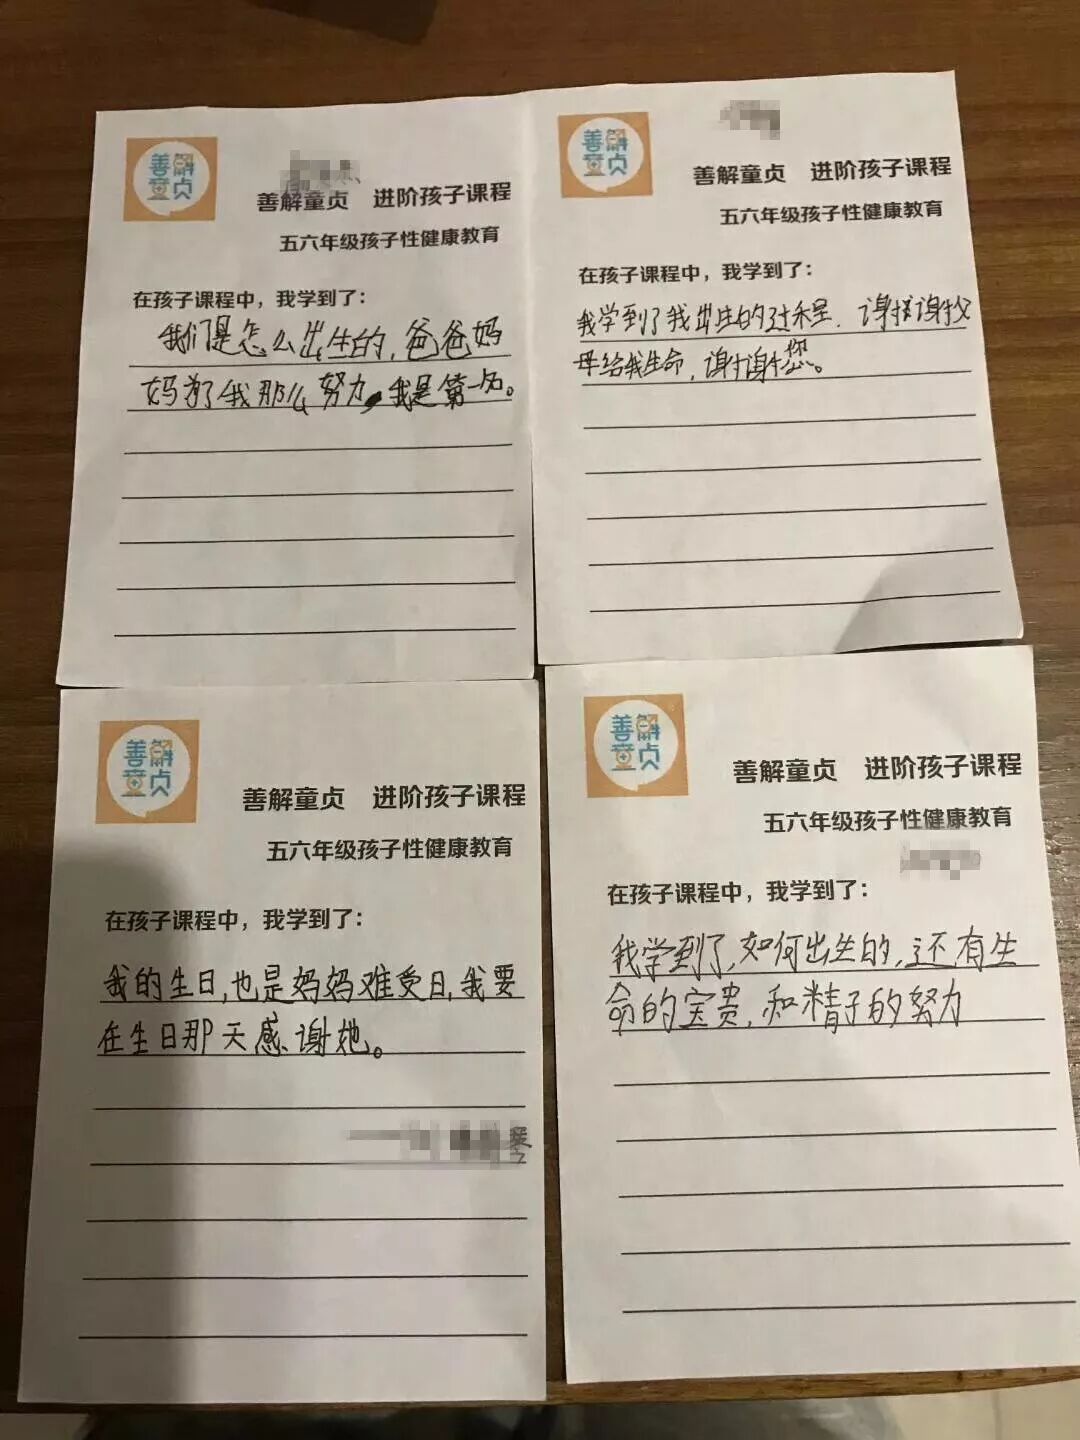 善解
童贞
善解童贞 进阶孩子课程
五六年级孩子性健康教育
在孩子课程中，我学到了：
我们是怎么出生的，爸爸妈
妈为了我那么努力，我是第一名。
善解
童贞
善解童贞 进阶孩子课程
五六年级孩子性健康教育
在孩子课程中，我学到了：
我学到了我出生的过程，谢谢谢谢父
母给我生命，谢谢您。
你
善解
童贞
善解童贞 进阶孩子课程
五六年级孩子性健康教育
在孩子课程中，我学到了：
我的生日，也是妈妈难受日，我要
在生日那天感谢她。
善解
童贞
善解童贞 进阶孩子课程
五六年级孩子性健康教育
在孩子课程中，我学到了：
我学到了，如何出生的，还有生
命的宝贵，和精子的努力